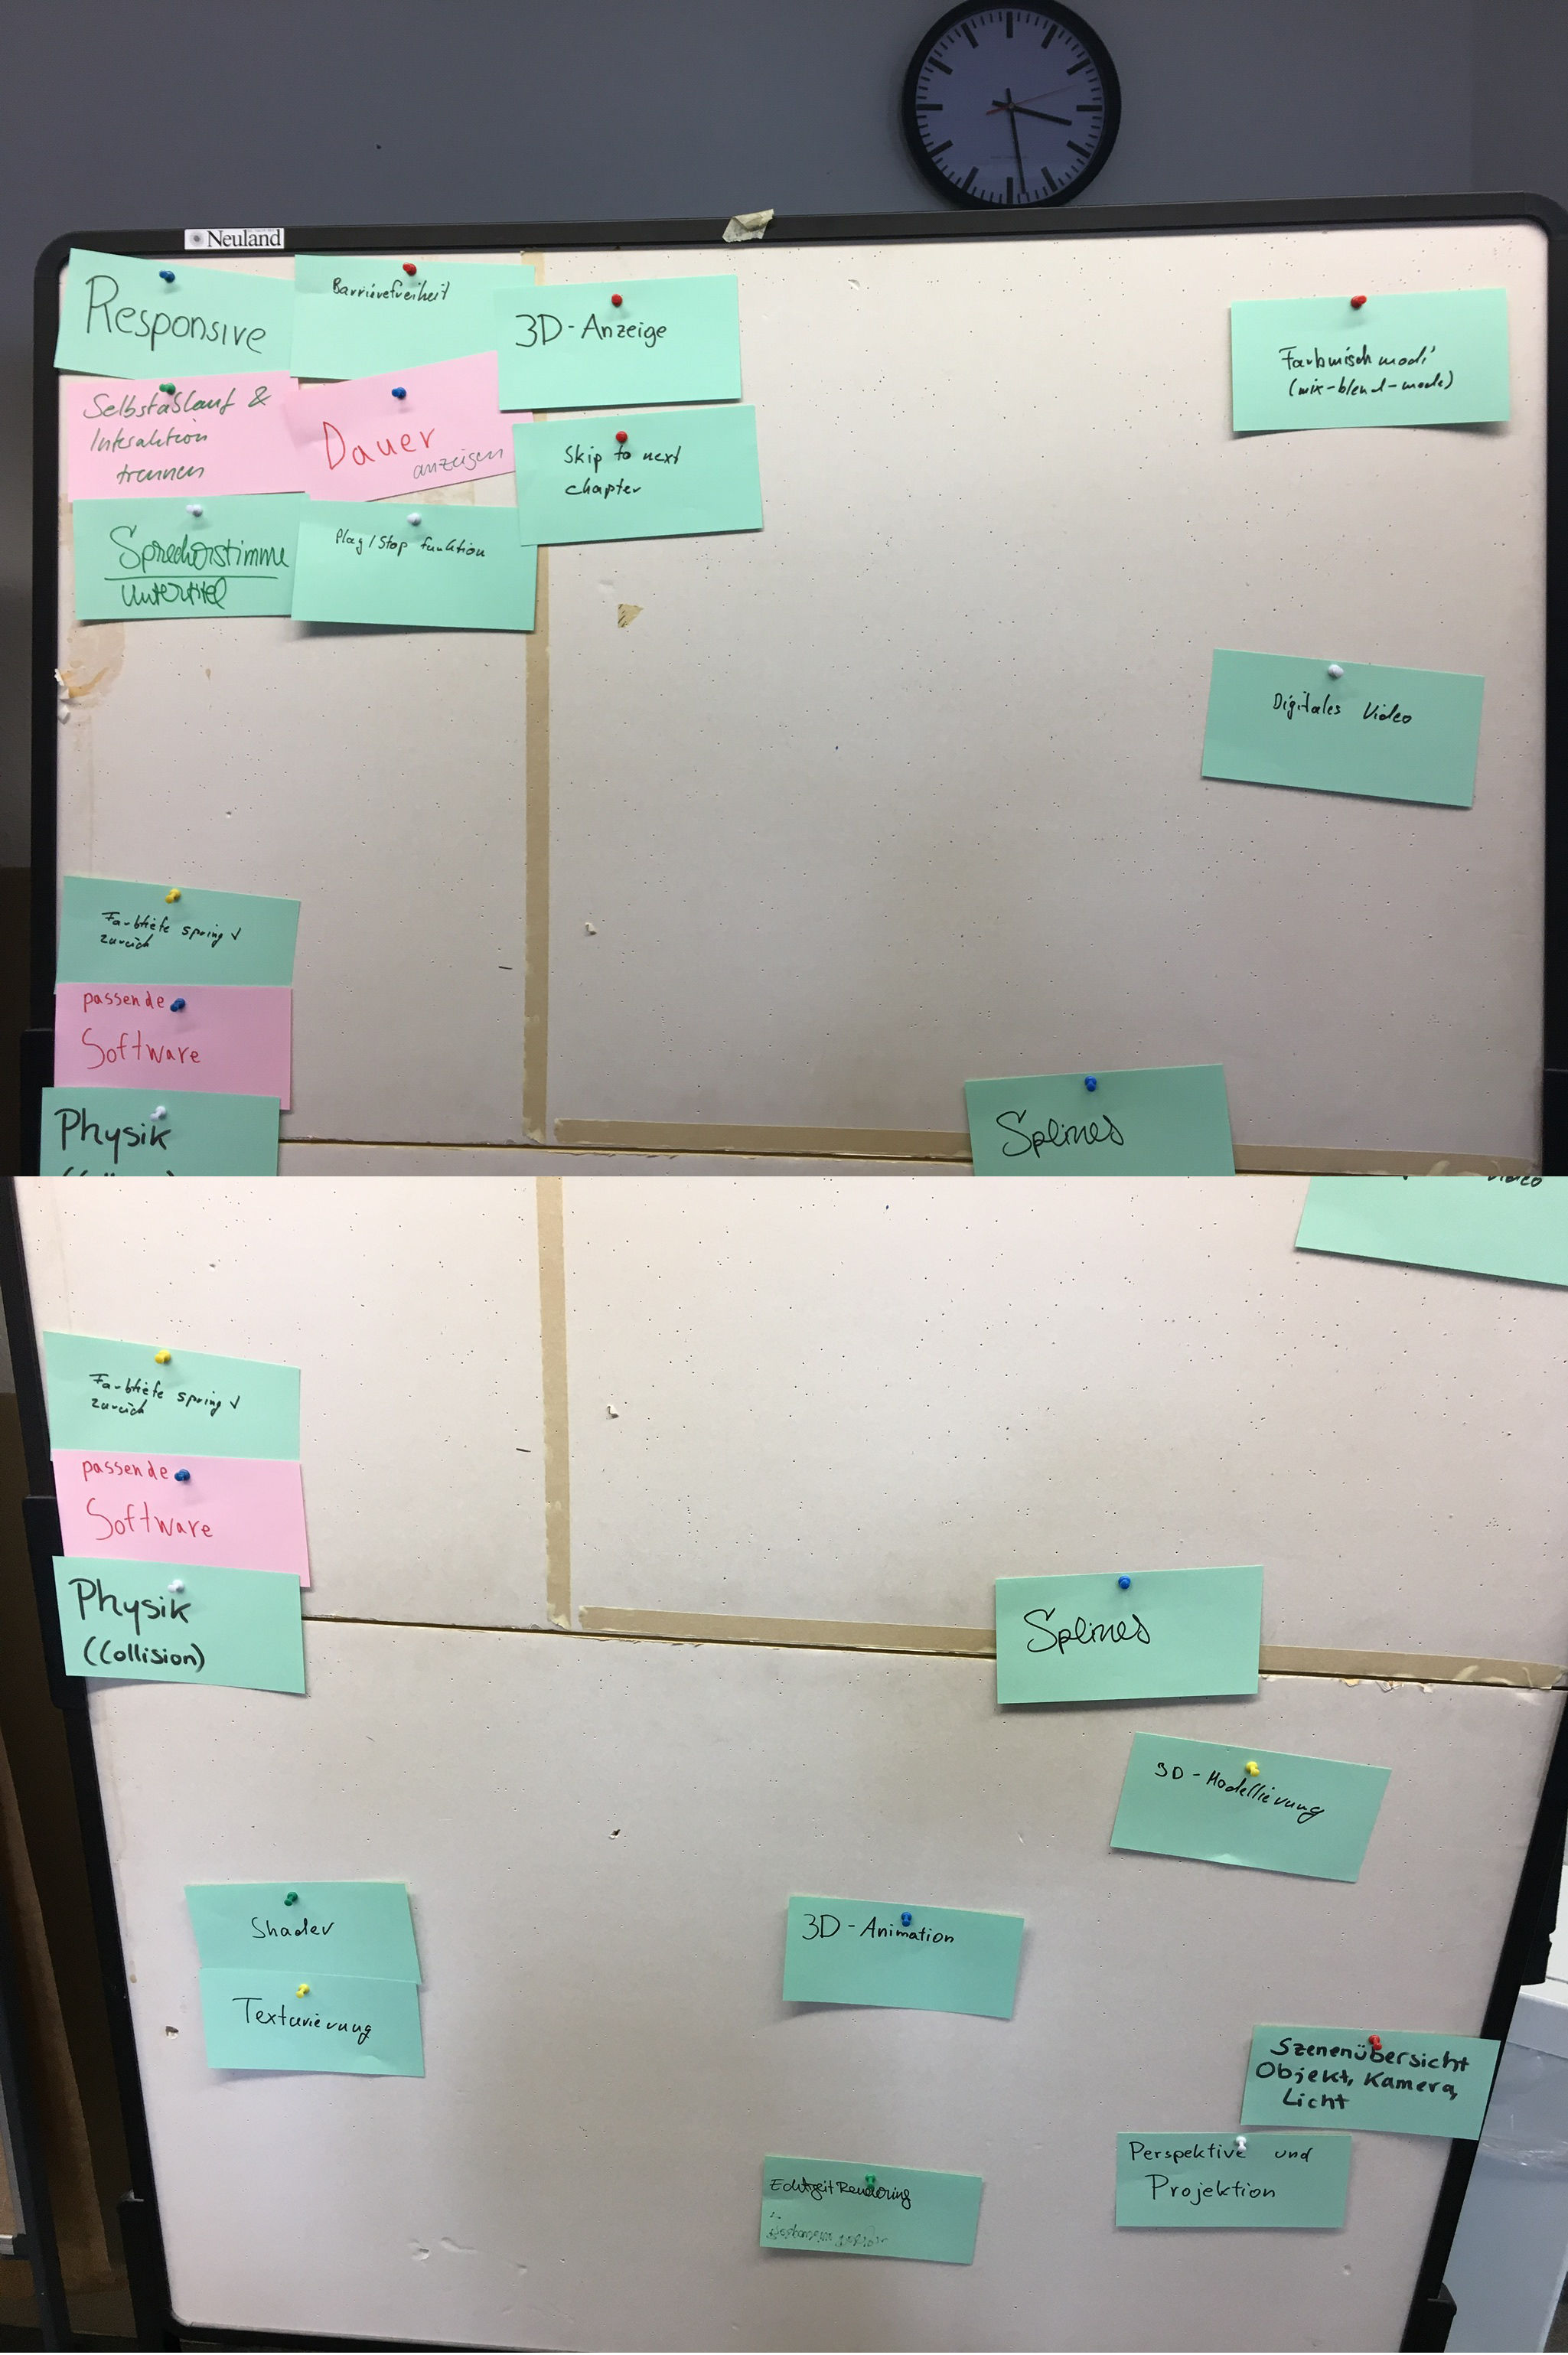 Neuland
Responsive
Barrierefreiheit
3D-Anzeige
Farbmischmodi
(mix-blend-mode)
Selbstablauf &
Interaktion
trennen
Dauer
anzeigen
Skip to next
chapter
Sprecherstimme
Untertitel
Play/Stop funktion
Digitales Video
Farbtiefe springt
zurück
passende
Software
Physik
Splines
Video
Farbtiefe springt
zurück
passende
Software
Physik
(Collision)
Splines
3D-Modellierung
Shader
3D-Animation
Texturierung
Szenenübersicht
Objekt, Kamera,
Licht
Perspektive und
Projektion
Echtzeit Rendering